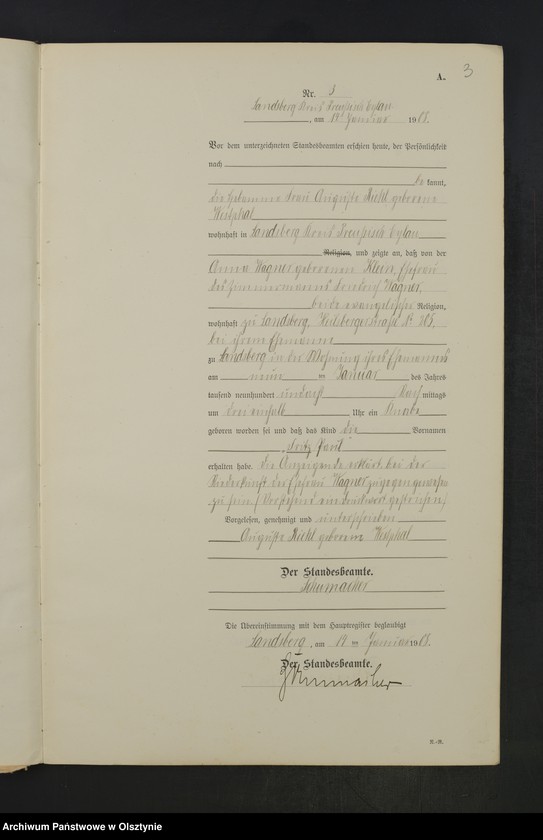 A.
3
Nr. 3
Landsberg Kreis Preußisch Eylau
, am 19 Januar 1908.
Vor dem unterzeichneten Standesbeamten erschien heute, der Persönlichkeit
nach
be kannt,
die Hebamme Frau Auguste Riehl geborene
Westphal
wohnhaft in Landsberg Kreis Preußisch Eylau
Religion, und zeigte an, daß von der
Anna Wagner geborenen Klein, Ehefrau
des Zimmermanns Wagner,
beide evangelischer Religion,
wohnhaft zu Landsberg, Heilsbergerstraße No 305,
bei ihrem Ehemanne
zu Landsberg in der Wohnung ihres Ehemannes
am neun ten Januar des Jahres
tausend neunhundert undacht Nach mittags
um Uhr ein Knabe
geboren worden sei und daß das Kind die Vornamen
Fritz Paul
erhalten habe. Die Anzeigende erklärt, bei der
Niederkunft der Ehefrau Wagner zugegen gewesen
zu sein. (Vorstehend ein Druckwort gestrichen)
Vorgelesen, genehmigt und unterschrieben
Auguste Riehl geborene Westphal
Der Standesbeamte.
Schumacher
Die Übereinstimmung mit dem Hauptregister beglaubigt
Landsberg, am 19 ten Januar 1908.
Der Standesbeamte.
Schumacher
Archiwum Państwowe w Olsztynie